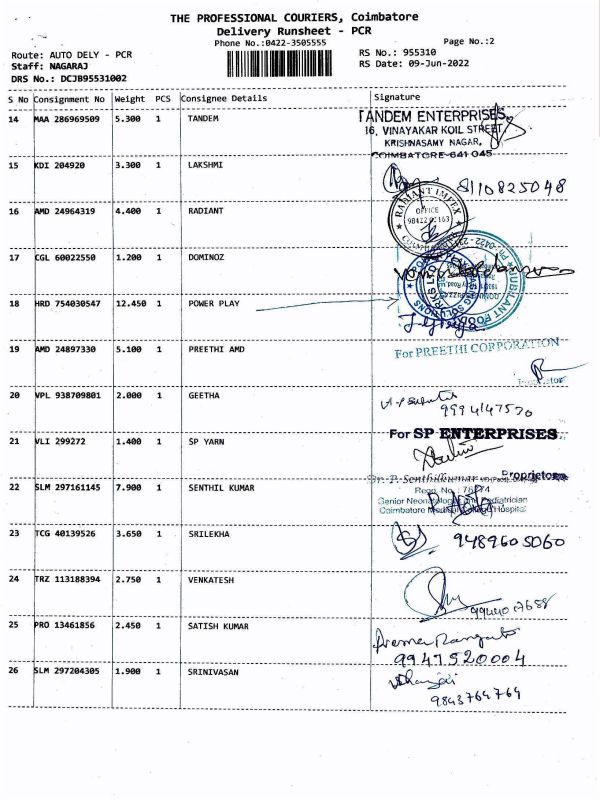 THE PROFESSIONAL COURIERS, Coimbatore
Delivery Runsheet - PCR
Phone No.:0422-3505555
Page No.:2
Route: AUTO DELY - PCR
RS No.: 955310
Staff: NAGARAJ
RS Date: 09-Jun-2022
DRS No.: DCJB95531002
S No Consignment No Weight PCS Consignee Details Signature
14 MAA 286969509 5.300 1 TANDEM
TANDEM ENTERPRISES,
16, VINAYAKAR KOIL STREET,
KRISHNASAMY NAGAR,
COIMBATORE-641 045
15 KDI 204920 3.300 1 LAKSHMI
8110825048
16 AMD 24964319 4.400 1 RADIANT
RADIANT IMPEX
OFFICE
17 CGL 60022550 1.200 1 DOMINOZ
JUBILANT FOOD
18 HRD 754030547 12.450 1 POWER PLAY
19 AMD 24897330 5.100 1 PREETHI AMD
For PREETHI CORPORATION
20 VPL 938709801 2.000 1 GEETHA
9994147570
21 VLI 299272 1.400 1 SP YARN
For SP ENTERPRISES
Proprietor
22 SLM 297161145 7.900 1 SENTHIL KUMAR
Dr. P. Senthilkumar
Senior Neonatologist and Pediatrician
Coimbatore Medical College Hospital
23 TCG 40139526 3.650 1 SRILEKHA
9489605060
24 TRZ 113188394 2.750 1 VENKATESH
25 PRO 13461856 2.450 1 SATISH KUMAR
26 SLM 297204305 1.900 1 SRINIVASAN
9843764764